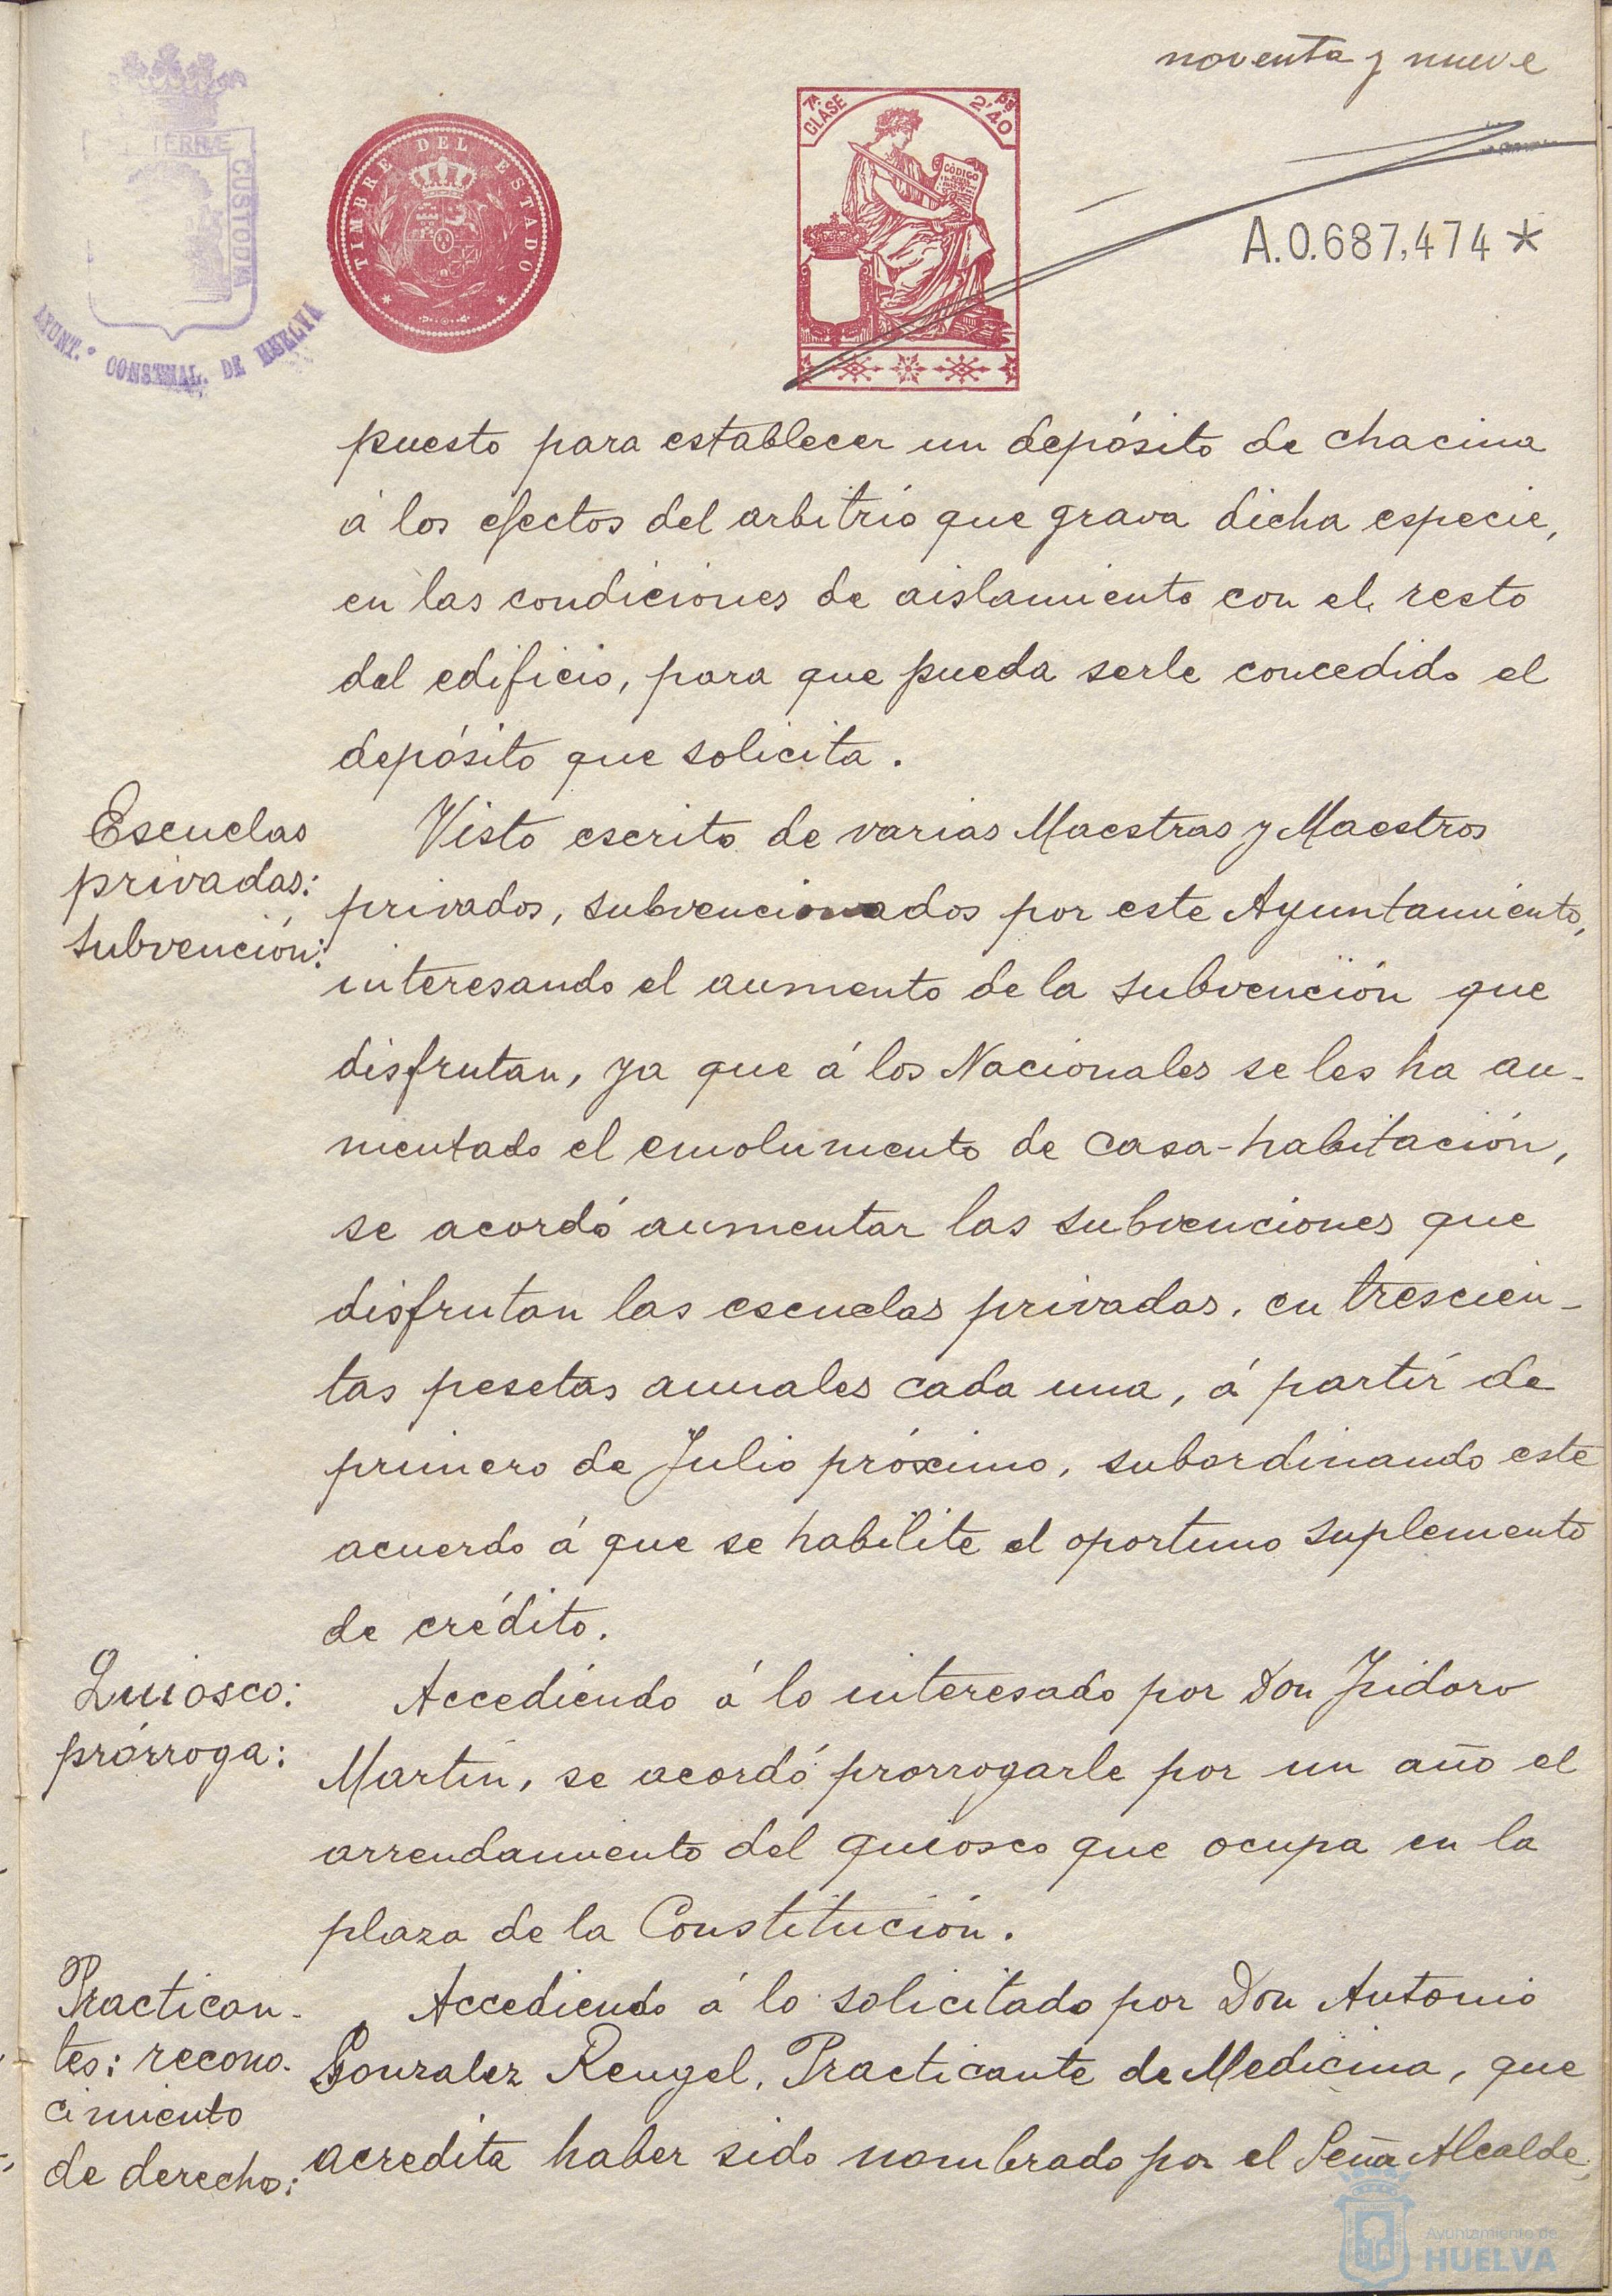 noventa y nueve
TERRÆ
CUSTODIA
AYUNT.º CONSTNAL. DE HUELVA
TIMBRE DEL ESTADO
7ª CLASE
2'40
CÓDIGO
A.0.687,474*
puesto para establecer un depósito de chacina
á los efectos del arbitrio que grava dicha especie,
en las condiciones de aislamiento con el resto
del edificio, para que pueda serle concedido el
depósito que solicita.
Escuelas
privadas:
subvención:
Visto escrito de varias Maestras y Maestros
privados, subvencionados por este Ayuntamiento,
interesando el aumento de la subvención que
disfrutan, ya que á los Nacionales se les ha au-
mentado el emolumento de casa-habitación,
se acordó aumentar las subvenciones que
disfrutan las escuelas privadas, en trescien-
tas pesetas anuales cada una, á partir de
primero de Julio próximo, subordinando este
acuerdo á que se habilite el oportuno suplemento
de crédito.
Quiosco:
prórroga:
Accediendo á lo interesado por Don Isidoro
Martín, se acordó prorrogarle por un año el
arrendamiento del quiosco que ocupa en la
plaza de la Constitución.
Practican-
tes: recono-
cimiento
de derecho:
Accediendo á lo solicitado por Don Antonio
Gonzalez Rengel, Practicante de Medicina, que
acredita haber sido nombrado por el Señor Alcalde,
Ayuntamiento de
HUELVA